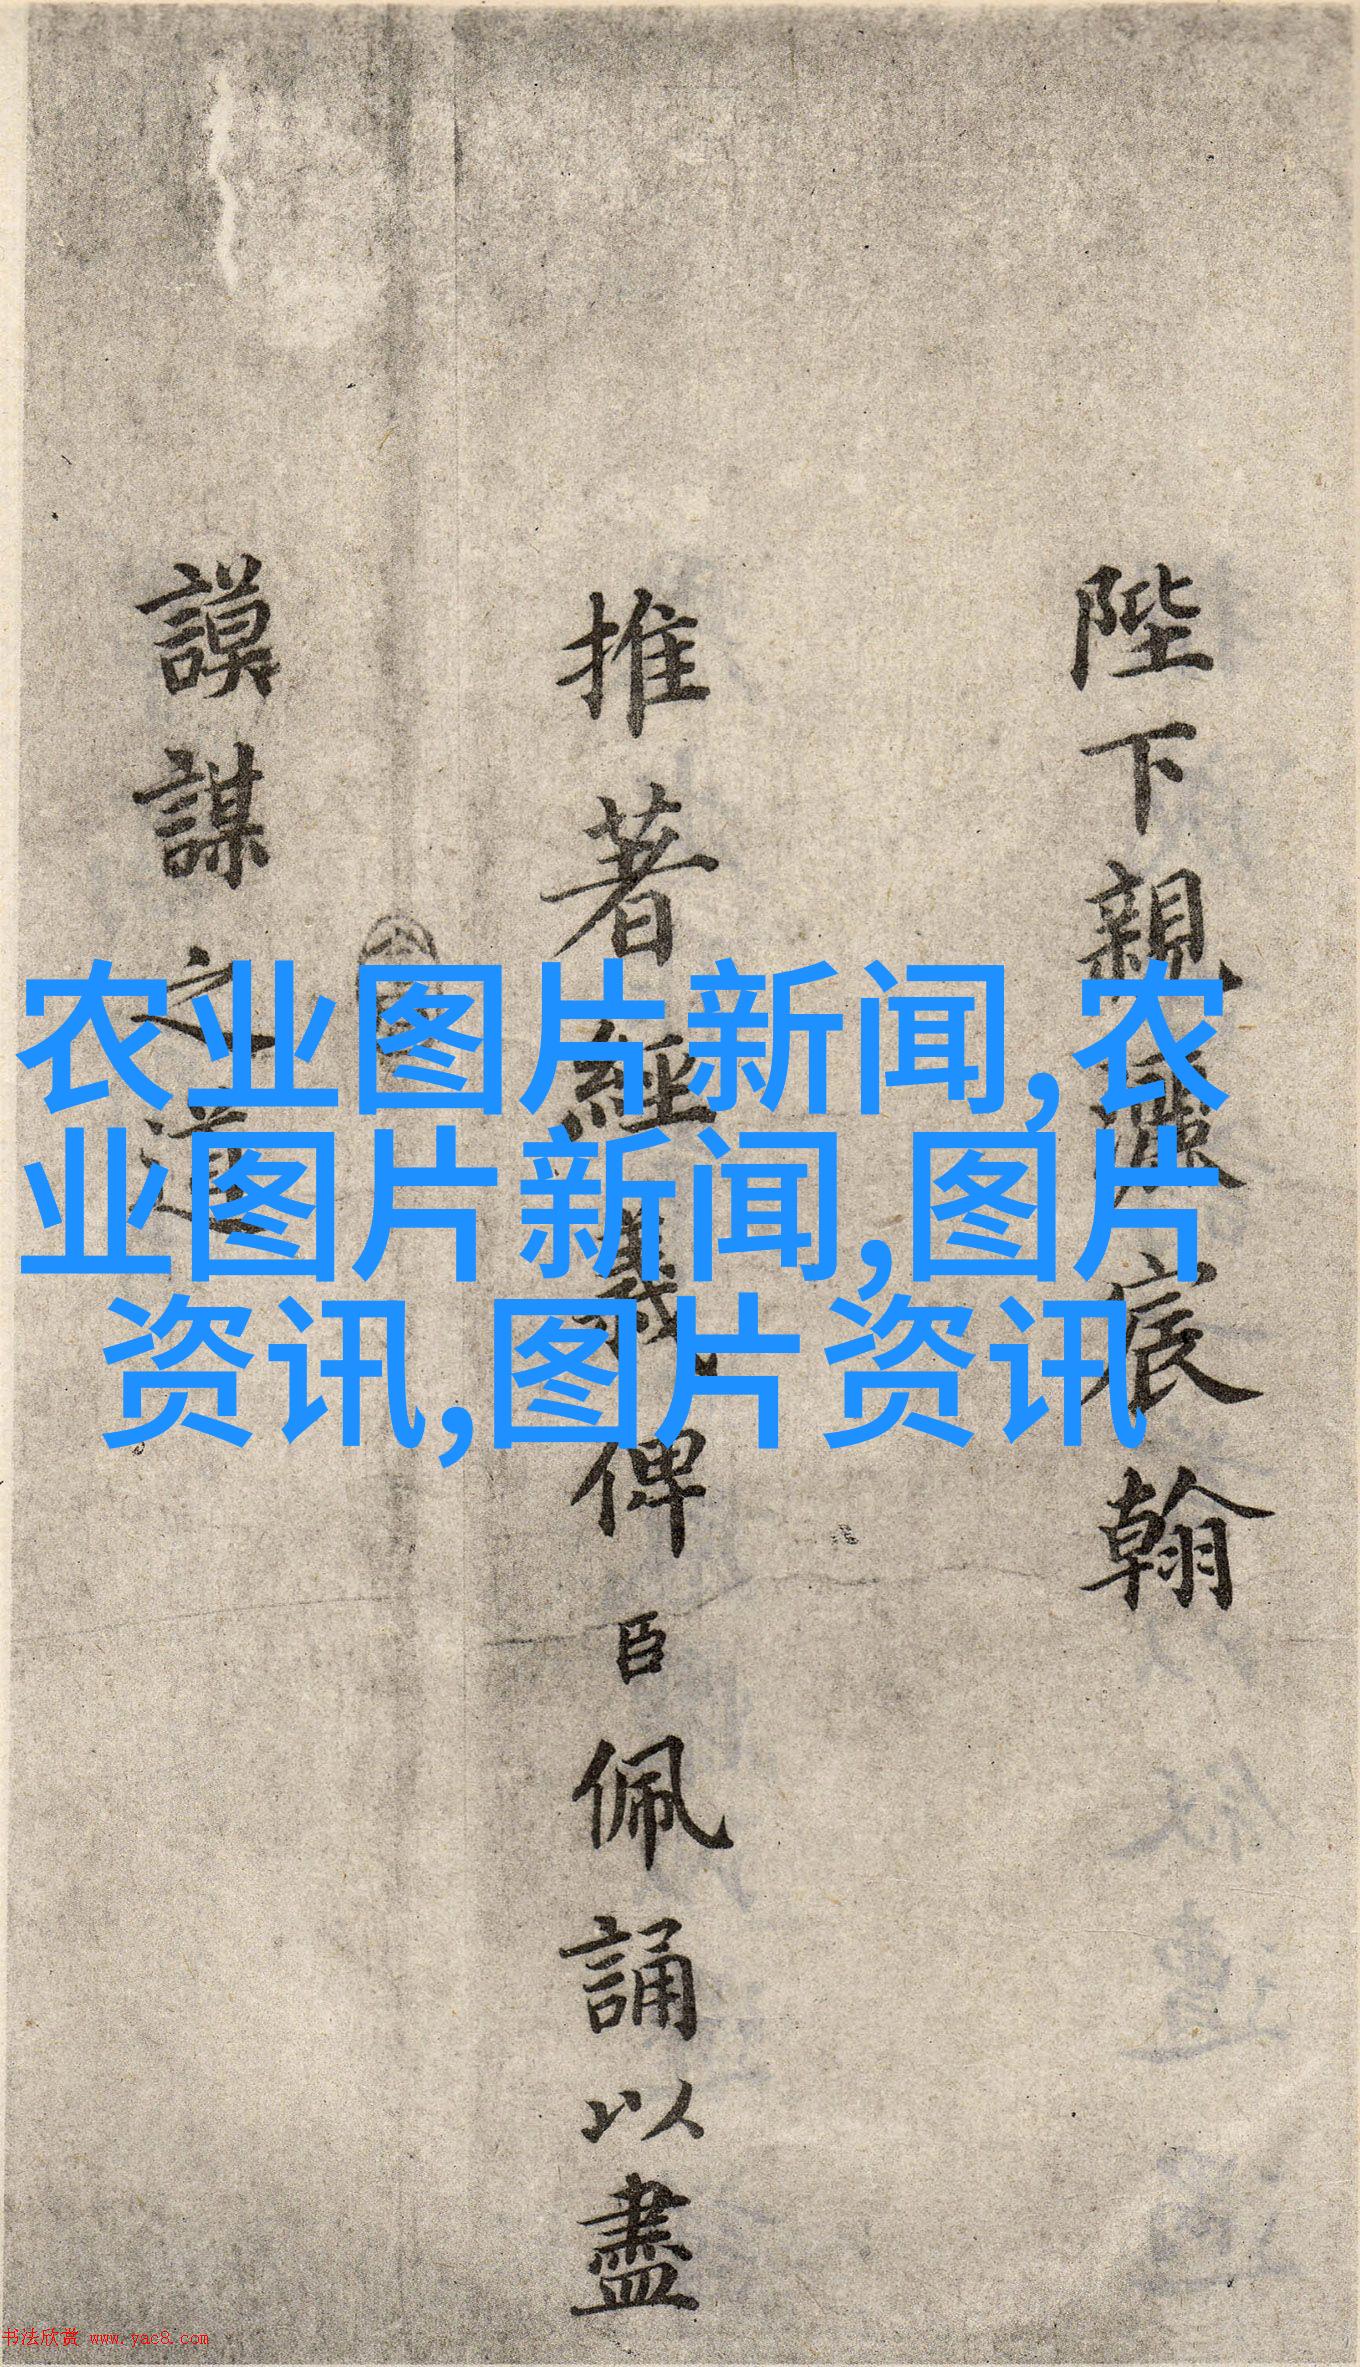 陛下親灑宸翰
推著經義俾臣佩誦以盡
謨謀之道
农业图片新闻,农
业图片新闻,图片
资讯,图片资讯
书法欣赏 www.yac8.com